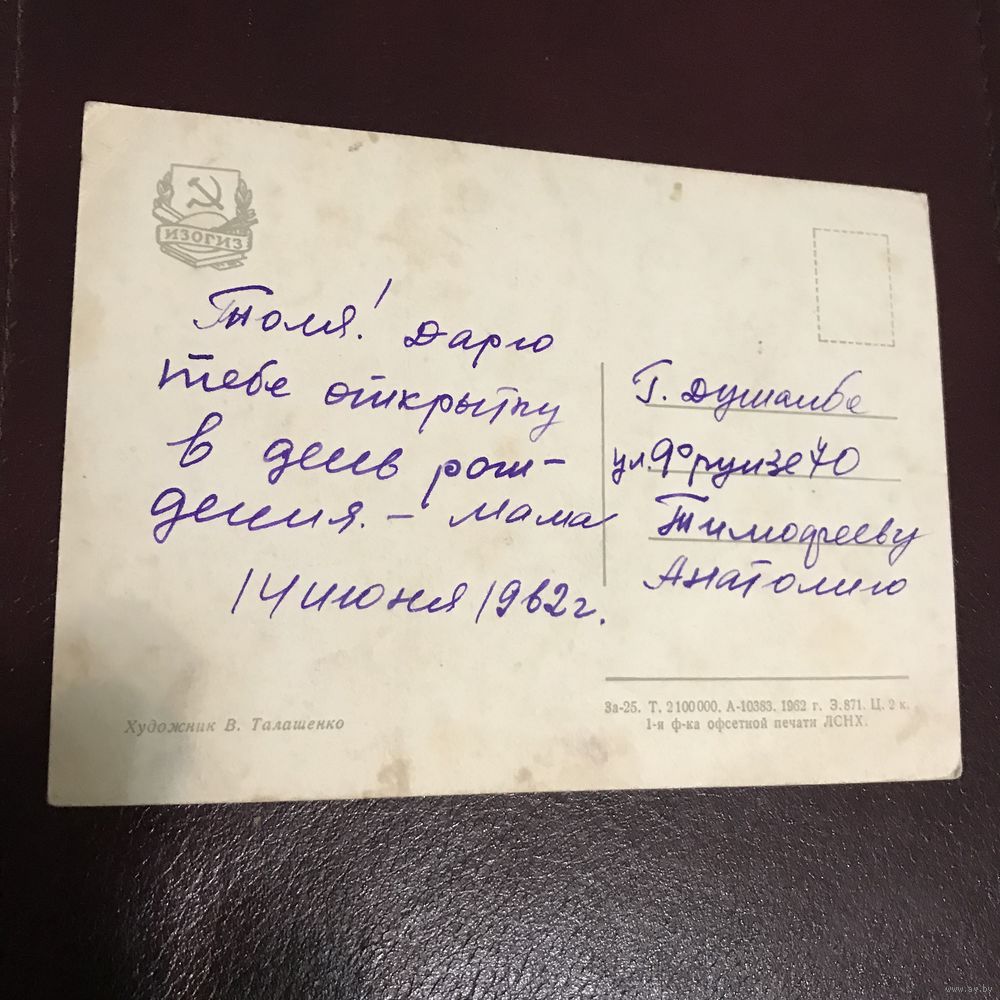 ИЗОГИЗ
Толя! Дарю
тебе открытку
в день рож-
дения. - Мама
14 июня 1962 г.
Г. Душанбе
ул. Фрунзе 40
Тимофееву
Анатолию
Художник В. Талашенко
За-25. Т. 2 100 000. А-10383. 1962 г. Э.871. Ц. 2 к.
1-я ф-ка офсетной печати ЛСНХ.
www.ay.by